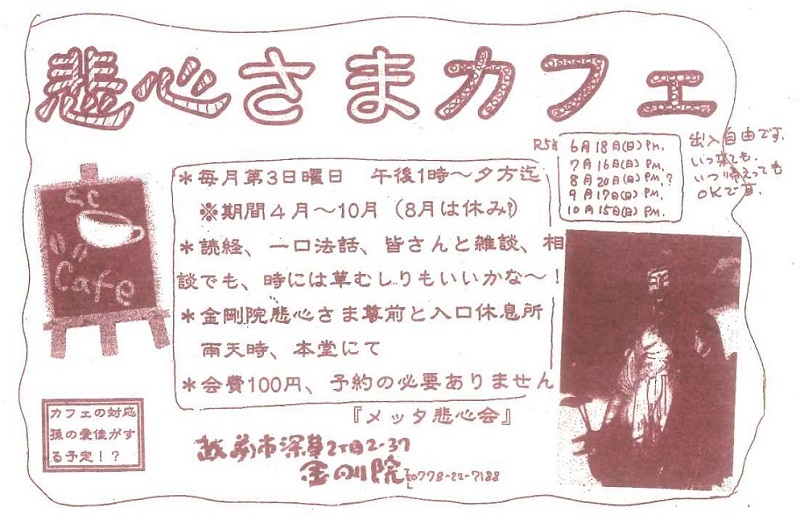 悲心さまカフェ
R5年
6月18日(日) P.M.
7月16日(日) P.M.
8月20日(日) P.M.?
9月17日(日) P.M.
10月15日(日) P.M.
出入自由です。
いつ来ても、
いつ帰えっても
OKです。
*毎月第3日曜日 午後1時～夕方迄
※期間4月～10月（8月は休み?）
*読経、一口法話、皆さんと雑談、相
談でも、時には草むしりもいいかな～！
*金剛院悲心さま尊前と入口休息所
雨天時、本堂にて
*会費100円、予約の必要ありません
『メッタ悲心会』
SC
Cafe
カフェの対応
孫の愛佳がす
る予定！？
越前市深草2丁目2-37
金剛院 TEL0778-22-7188